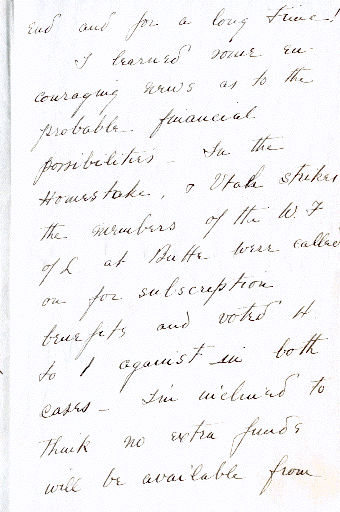 end and for a long time!
I learned some en-
couraging news as to the
probable financial
possibilities - In the
Homestake, & Utah strikes
the members of the W. F
of L at Butte were called
on for subscription
benefits and voted 4
to 1 against in both
cases - I'm inclined to
think no extra funds
will be available from